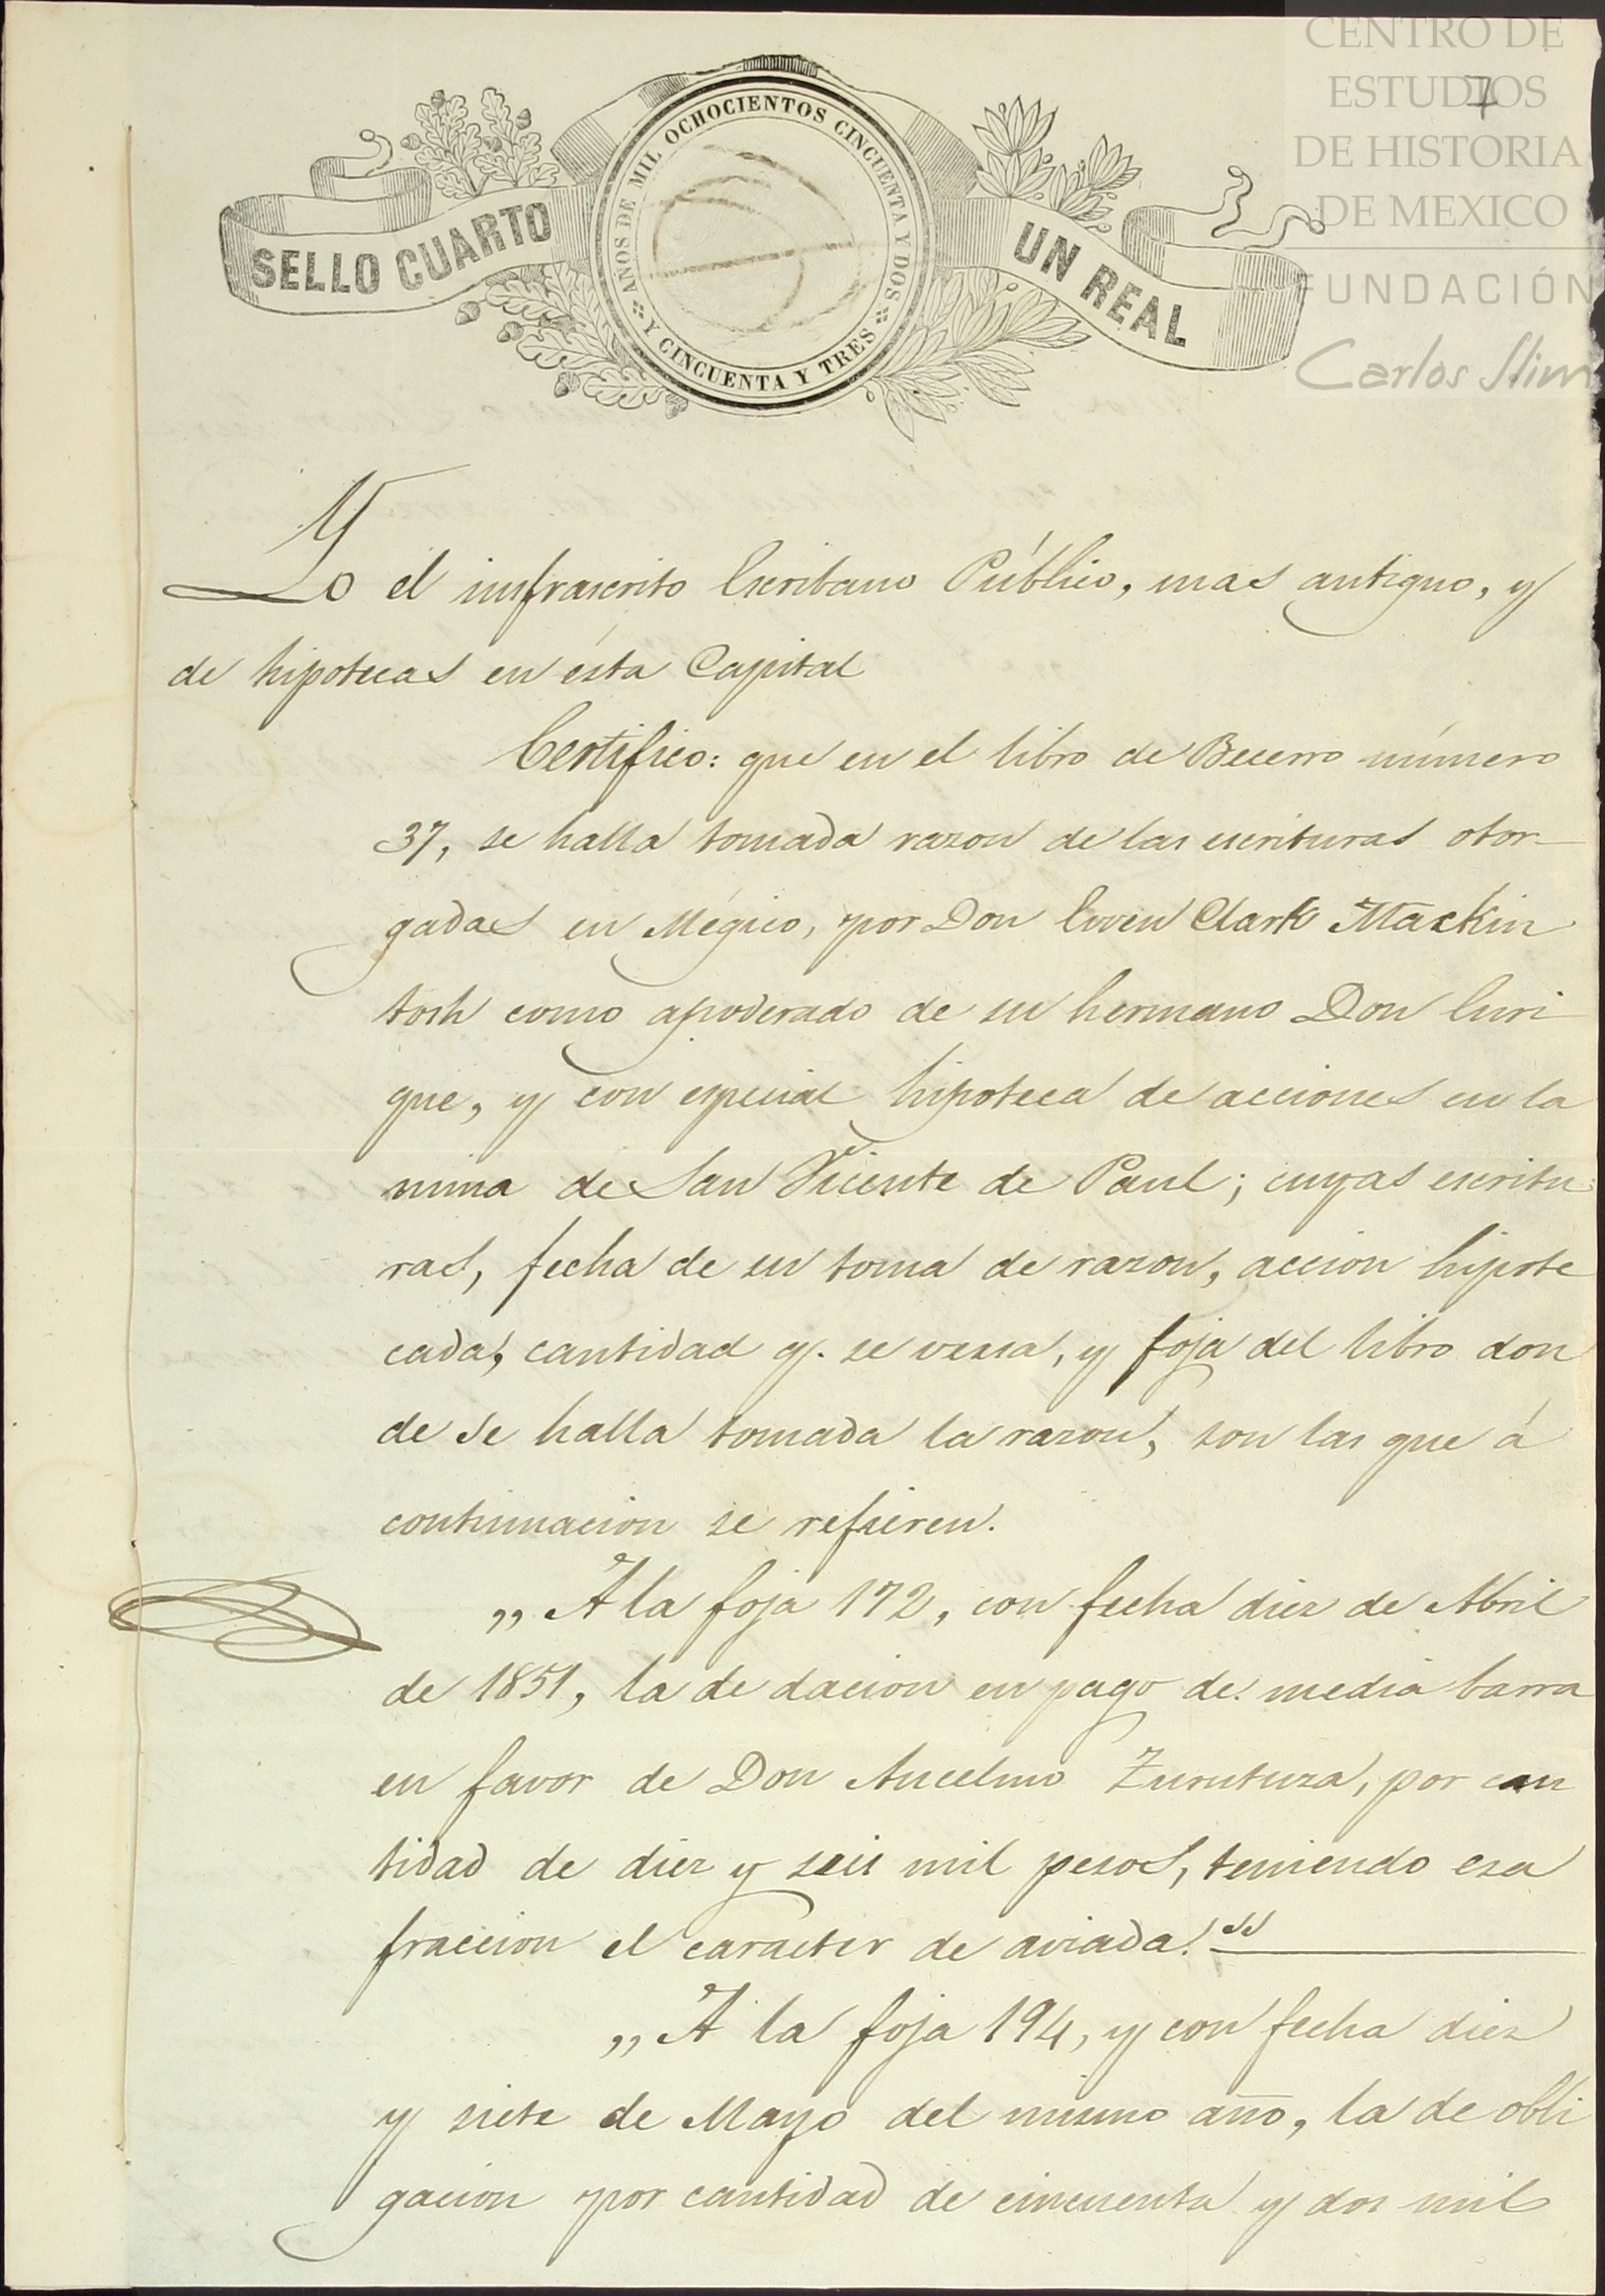 CENTRO DE
ESTUDIOS
DE HISTORIA
DE MEXICO
FUNDACIÓN
Carlos Slim
7
SELLO CUARTO
AÑOS DE MIL OCHOCIENTOS CINCUENTA Y DOS
Y CINCUENTA Y TRES
UN REAL
Yo el infrascrito Escribano Público, mas antiguo, y
de hipotecas en ésta Capital
Certifico: que en el libro de Becerro número
37, se halla tomada razon de las escrituras otor-
gadas en Mégico, por Don Ewen Clark Mackin
tosh como apoderado de su hermano Don Enri
que, y con especial hipoteca de acciones en la
mina de San Vicente de Paul; cuyas escritu
ras, fecha de su toma de razon, accion hipote
cada, cantidad q. se versa, y foja del libro don
de se halla tomada la razon, son las que á
continuacion se refieren.
„ A la foja 172, con fecha diez de Abril
de 1851, la de dacion en pago de media barra
en favor de Don Ancelmo Zurutuza, por can
tidad de diez y seis mil pesos, teniendo esa
fraccion el caracter de aviada."
„ A la foja 194, y con fecha diez
y siete de Mayo del mismo año, la de obli
gacion por cantidad de cincuenta y dos mil